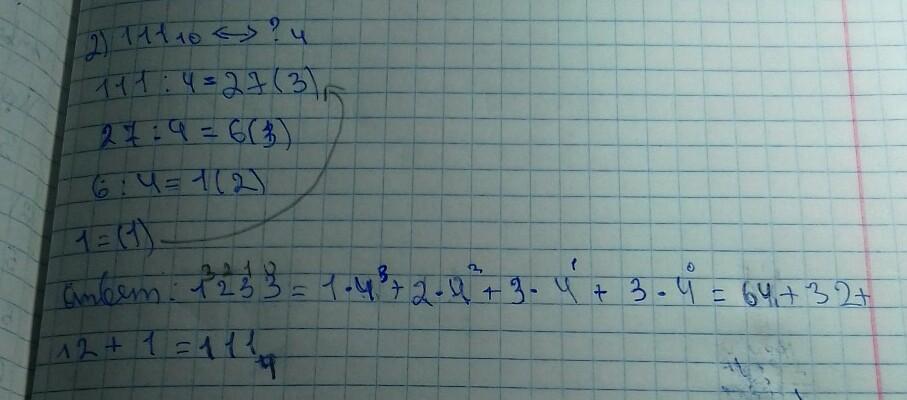 2) 111₁₀ ↔ ?₄
111 : 4 = 27(3)
27 : 4 = 6(3)
6 : 4 = 1(2)
1 = (1)
ответ: 1³2²3¹3⁰ = 1·4³ + 2·4² + 3·4¹ + 3·4⁰ = 64 + 32 +
12 + 1 = 111₄